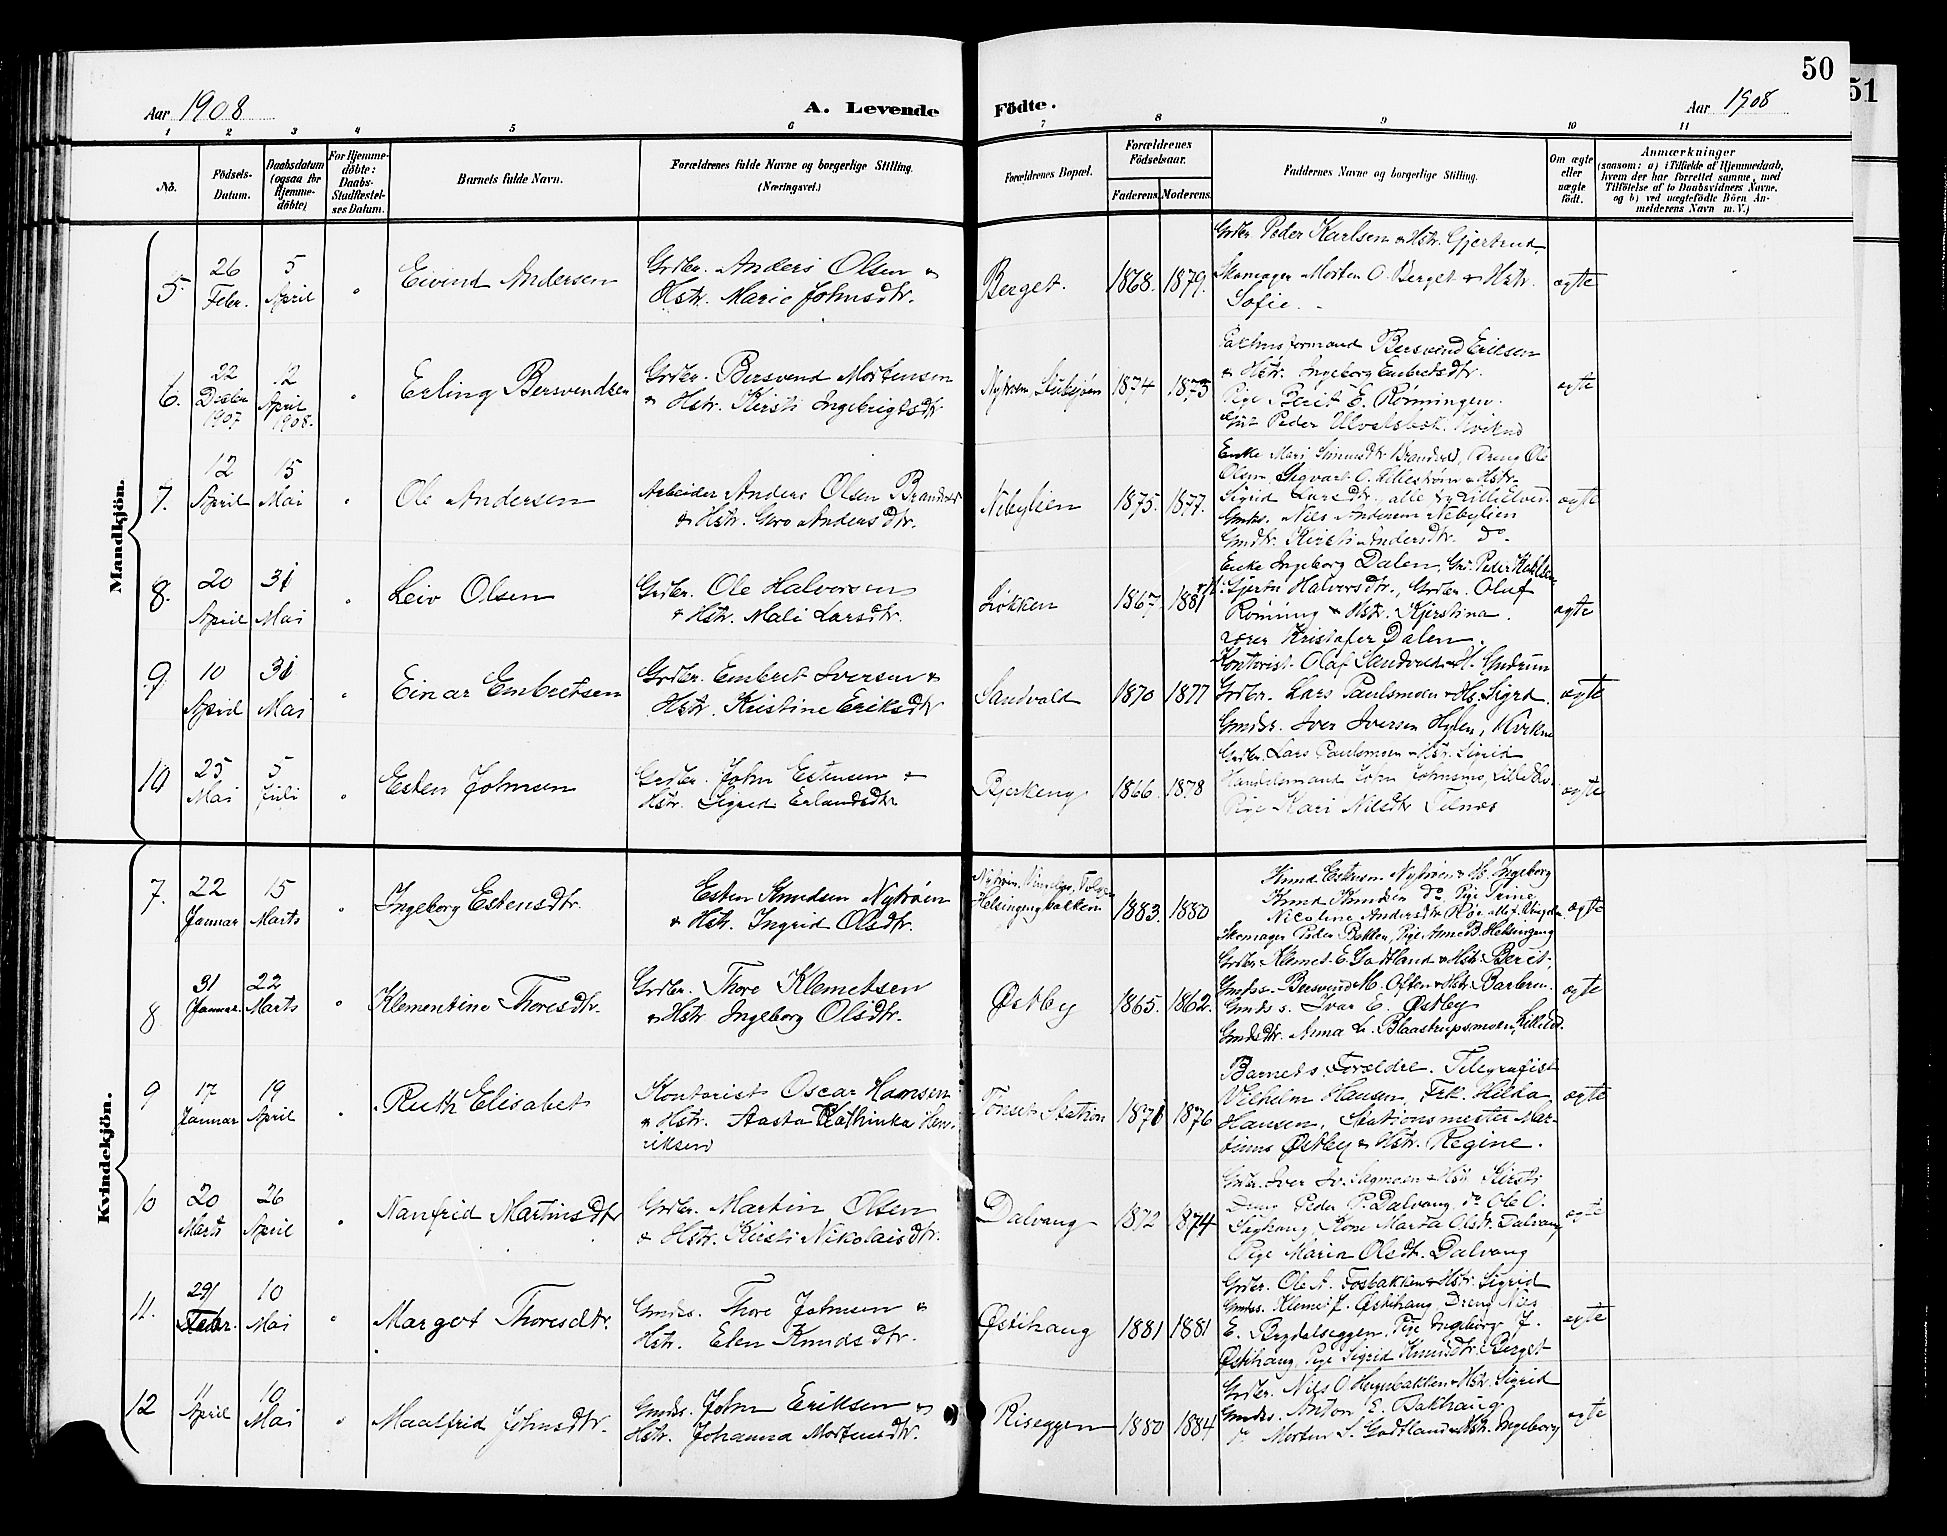 50
51
Aar 1908
A. Levende
Födte.
Aar 1908
1 2 3 4 5 6 7 8 9 10 11
No.
Födsels-Datum.
Daabsdatum (ogsaa for Hjemme-döbte)
For Hjemme-döbte: Daabs-Stadfæstel-ses Datum.
Barnets fulde Navn.
Forældrenes fulde Navne og borgerlige Stilling.
(Næringsvei.)
Forældrenes Bopæl.
Forældrenes Födselsaar.
Faderens. Moderens.
Faddernes Navne og borgerlige Stilling.
Om ægte eller uægte født.
Anmærkninger
(saasom: a) i Tilfælde af Hjemmedaab,
hvem der har forrettet samme, med
Tilföielse af to Daabsvidners Navne,
og b) ved uægtefödte Börn An-
melderens Navn m. V.)
Mandkjön.
5. 26 Febr. 5 April " Eivind Andersen
Grdbr. Anders Olsen &
Hstr. Marie Johnsdtr.
Berget. 1868. 1879.
Grdbr. Peder Karlsen & Hstr. Gjertrud,
Skomager Morten O. Berget & Hstr.
Sofie. -
ægte
6. 22 Decbr 1907 12 April 1908. " Erling Bersvendsen
Grdbr. Bersvend Mortensen
& Hstr. Kirsti Ingebrigtsdtr
1874 1873
Pakhusformand Bersvend Eriksen
& Hstr. Ingeborg Embretsdtr.
Pige Berit E. Rønningen.
Peder Ulvelsbak. Kvikne
ægte
7. 12 April 15 Mai " Ole Andersen
Arbeider Anders Olsen Brandvold
& Hstr. Guro Andersdtr.
Nebylien 1875. 1877.
Enke Mari Simensdtr Brandvold, Dreng Ole
Olsen, Sigvart O. Lillestrøm & Hstr.
Sigrid Larsdtr., alle fr Lilleelven.
Gmds. Nils Andersen Nebylien
Gmdtr. Kirsti Andersdtr. do.
ægte
8. 20 April 31 Mai " Leiv Olsen
Grdbr. Ole Halvorsen
& Hstr. Mali Larsdtr.
Løkken 1867. 1881
Enke Ingeborg Dalen, Peder
Gjertr Halvorsdtr., Grdbr. Oluf
Røning & Hstr. Kjerstina.
Kristofer Dalen.
ægte
9. 10 April 31 Mai " Einar Embretsen
Grdbr. Embret Iversen &
Hstr. Kristine Eriksdtr
Sandvold 1870 1877
Kontorist Olaf Sandvold & H. Gudrun
Grdbr. Lars Paulsmoen & Hs. Sigrd.
Gmds. Iver Iversen Hylen, Kvikne
ægte
10 25 Mai 5 Juli " Esten Johnsen
Grdbr. John Estensen &
Hstr. Sigrid Erlandsdtr
Bjerkeng 1866. 1878
Grdbr. Lars Paulsmoen & Hstr. Sigrid
Handelsmand John Johnsmo, Lille Elv.
Pige Kari Nilsdtr Telnes
ægte
Kvindekjön.
7. 22 Januar 15 Marts " Ingeborg Estensdtr.
Esten Knudsen Nytrøen
& Hstr. Ingrid Olsdtr.
Nytrøen, Vingelen, Tolgen
Helsingengbakken
1883. 1880
Knud Estensen Nytrøen & H. Ingeborg
Knud Knudsen do, Pige Trine
Nicoline Andersdtr
Skomager Peder Bakken, Pige Anne B. Helsingeng
ægte
8 31 Januar. 22 Marts " Klementine Thoresdtr.
Grdbr. Thore Klemetsen
& Hstr Ingeborg Olsdtr.
Østby 1865. 1862.
Grdbr Klemet E. Godtland & Hstr. Berit;
Gmds. Bersvend M. Often & Hstr Barbro.
Gmds s. Ivar E. Østby
Gmdsdtr. Anna L. Blaastrupsmoen, Lilleel.
ægte
9 17 Januar 19 April " Ruth Elisabet
Kontorist Oscar Hansen
& Hstr. Aasta Cathinka Hen-
riksen
Tönset Station 1871 1876
Barnets Foreldre. Telegrafist
Vilhelm Hansen, Frk. Hilda
Hansen, Stationsmester Mar-
tinus Østby & Hstr. Regine.
ægte
10 20 Marts 26 April " Nanfrid Martinsdtr
Grdbr. Martin Olsen
& Hstr. Kirsti Nikolaisdtr.
Dalvang 1872 1874
Grdbr. Iver Iv. Sagmoen & Hstr Kirsti
Dreng Peder P. Dalvang, do Ole O.
Kone Marta Olsdtr. Dalvang
Pige Marin Olsdtr. Dalvang
ægte
11. 29/ Febr. 10 Mai " Margot Thoresdtr.
Gmds. Thore Johnsen &
Hstr. Elen Knudsdtr.
Østihaug 1881 1881
Grdbr. Ole A. Fosbakken & Hstr. Sigrid
Gmds. Klemet J. Østihaug, Dreng Nils
E. Brydalseggen, Pige Ingeborg J.
Østihaug, Pige Sigrid Knudsdtr. Berget
ægte
12 11 April 10 Mai " Maalfrid Johnsdtr.
Gmds. John Eriksen &
Hstr. Johanna Mortensdtr.
Riseggen 1880 1884
Grdbr. Nils O & Hstr. Sigrid
Gmds. Anton E. Bakhaug
do Morten S. Godtland & Hstr. Ingeborg
ægte